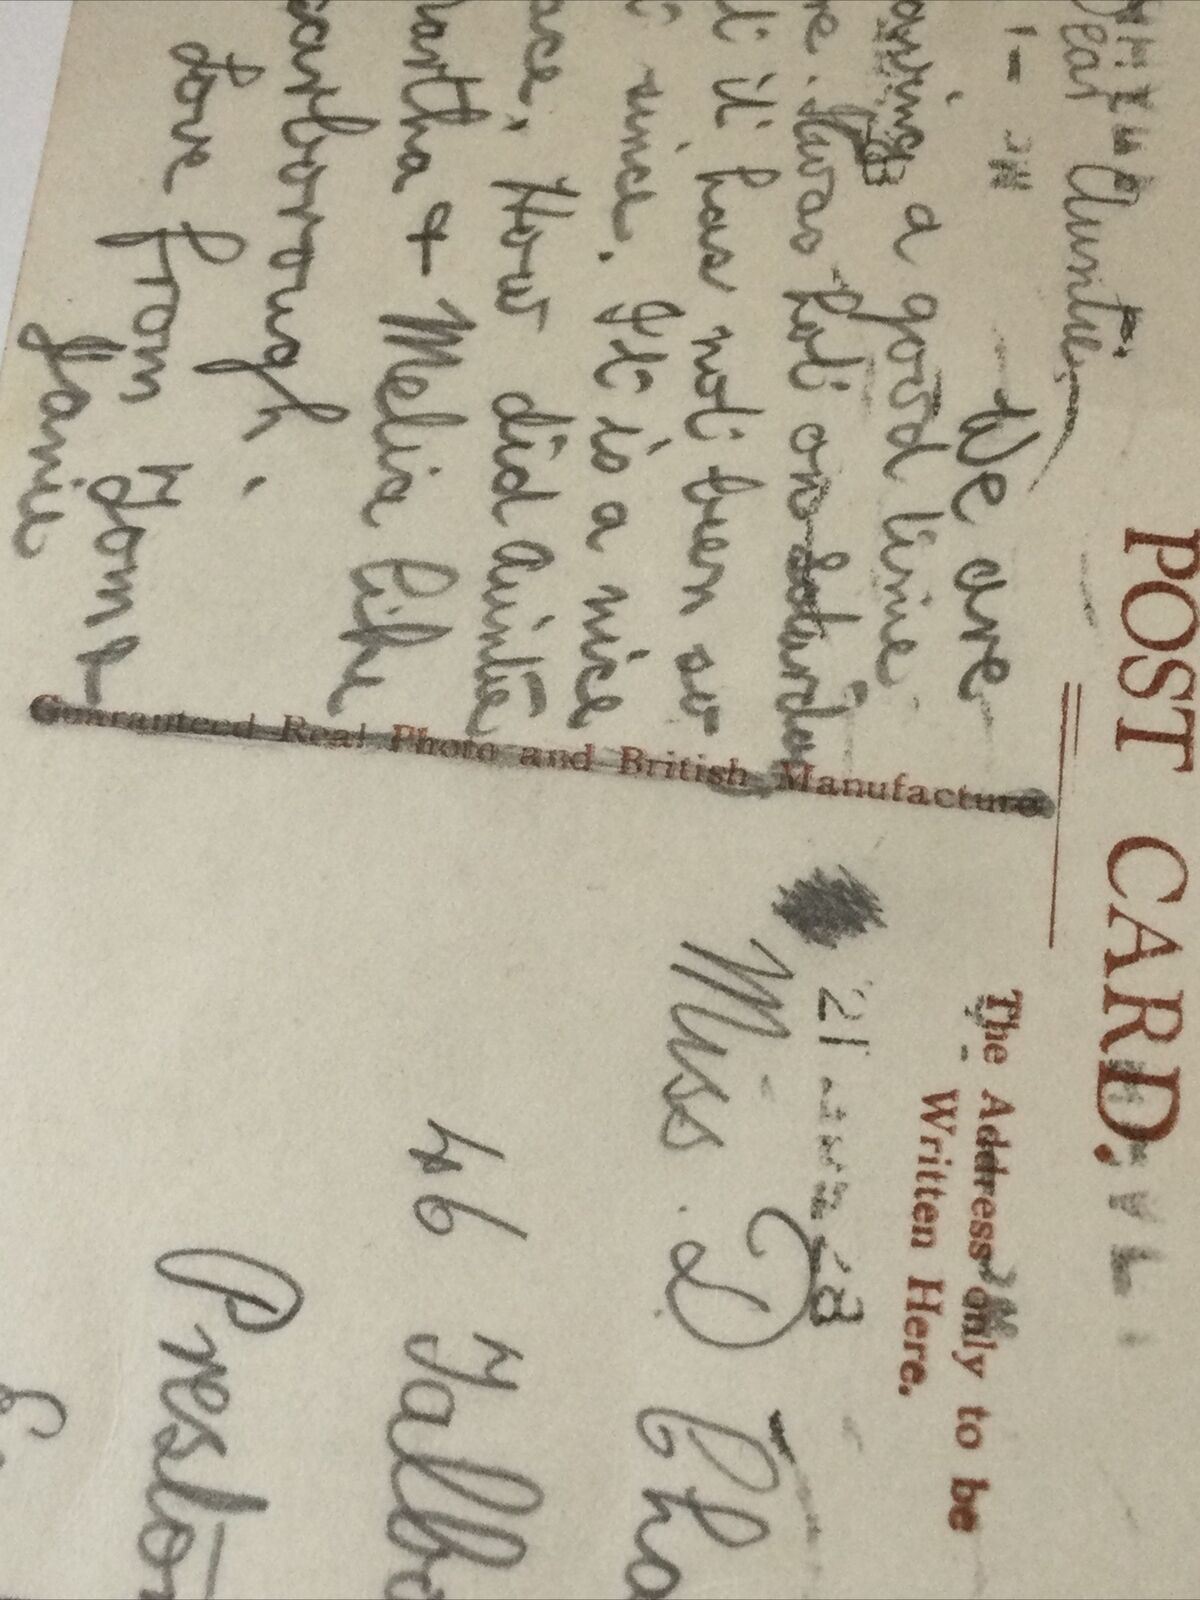 POST CARD.
Dear Auntie,
We are
aving a good time
re. It was hot on Saturday
it has not been so
since. It is a nice
ace. How did Auntie
artha + Melia like
carborough.
Love from Mom &
Janie
Guaranteed Real Photo and British Manufacture
The Address only to be
Written Here.
Miss. D Cha
46 Talbo
Preston